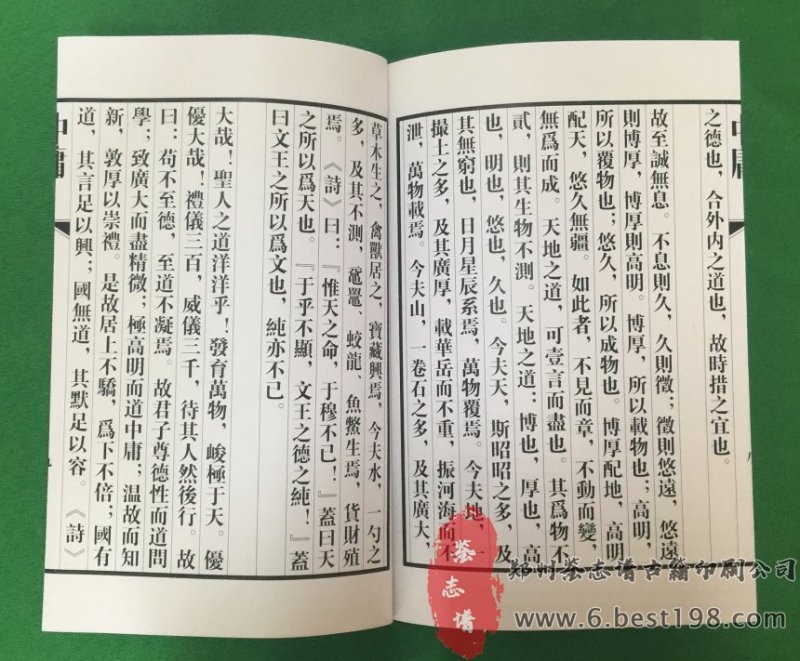 之德也，合外内之道也，故時措之宜也。
故至誠無息。不息則久，久則徵；徵則悠遠，悠遠
則博厚，博厚則高明。博厚，所以載物也；高明，
所以覆物也；悠久，所以成物也。博厚配地，高明
配天，悠久無疆。如此者，不見而章，不動而變，
無爲而成。天地之道，可壹言而盡也。其爲物不
貳，則其生物不測。天地之道：博也，厚也，高
也，明也，悠也，久也。今夫天，斯昭昭之多，及
其無窮也，日月星辰系焉，萬物覆焉。今夫地，一
撮土之多，及其廣厚，載華岳而不重，振河海而不
泄，萬物載焉。今夫山，一卷石之多，及其廣大，
草木生之，禽獸居之，寶藏興焉，今夫水，一勺之
多，及其不測，黿鼍、蛟龍、魚鱉生焉，貨財殖
焉。《詩》曰：『惟天之命，于穆不已！』蓋曰天
之所以爲天也。『于乎不顯，文王之德之純！』蓋
曰文王之所以爲文也，純亦不已。
大哉！聖人之道洋洋乎！發育萬物，峻極于天。優
優大哉！禮儀三百，威儀三千，待其人然後行。故
曰：苟不至德，至道不凝焉。故君子尊德性而道問
學；致廣大而盡精微；極高明而道中庸；温故而知
新，敦厚以崇禮。是故居上不驕，爲下不倍；國有
道，其言足以興；國無道，其默足以容。《詩》
中庸
鉴志谱
郑州鉴志谱古籍印刷公司
www.6.best198.com